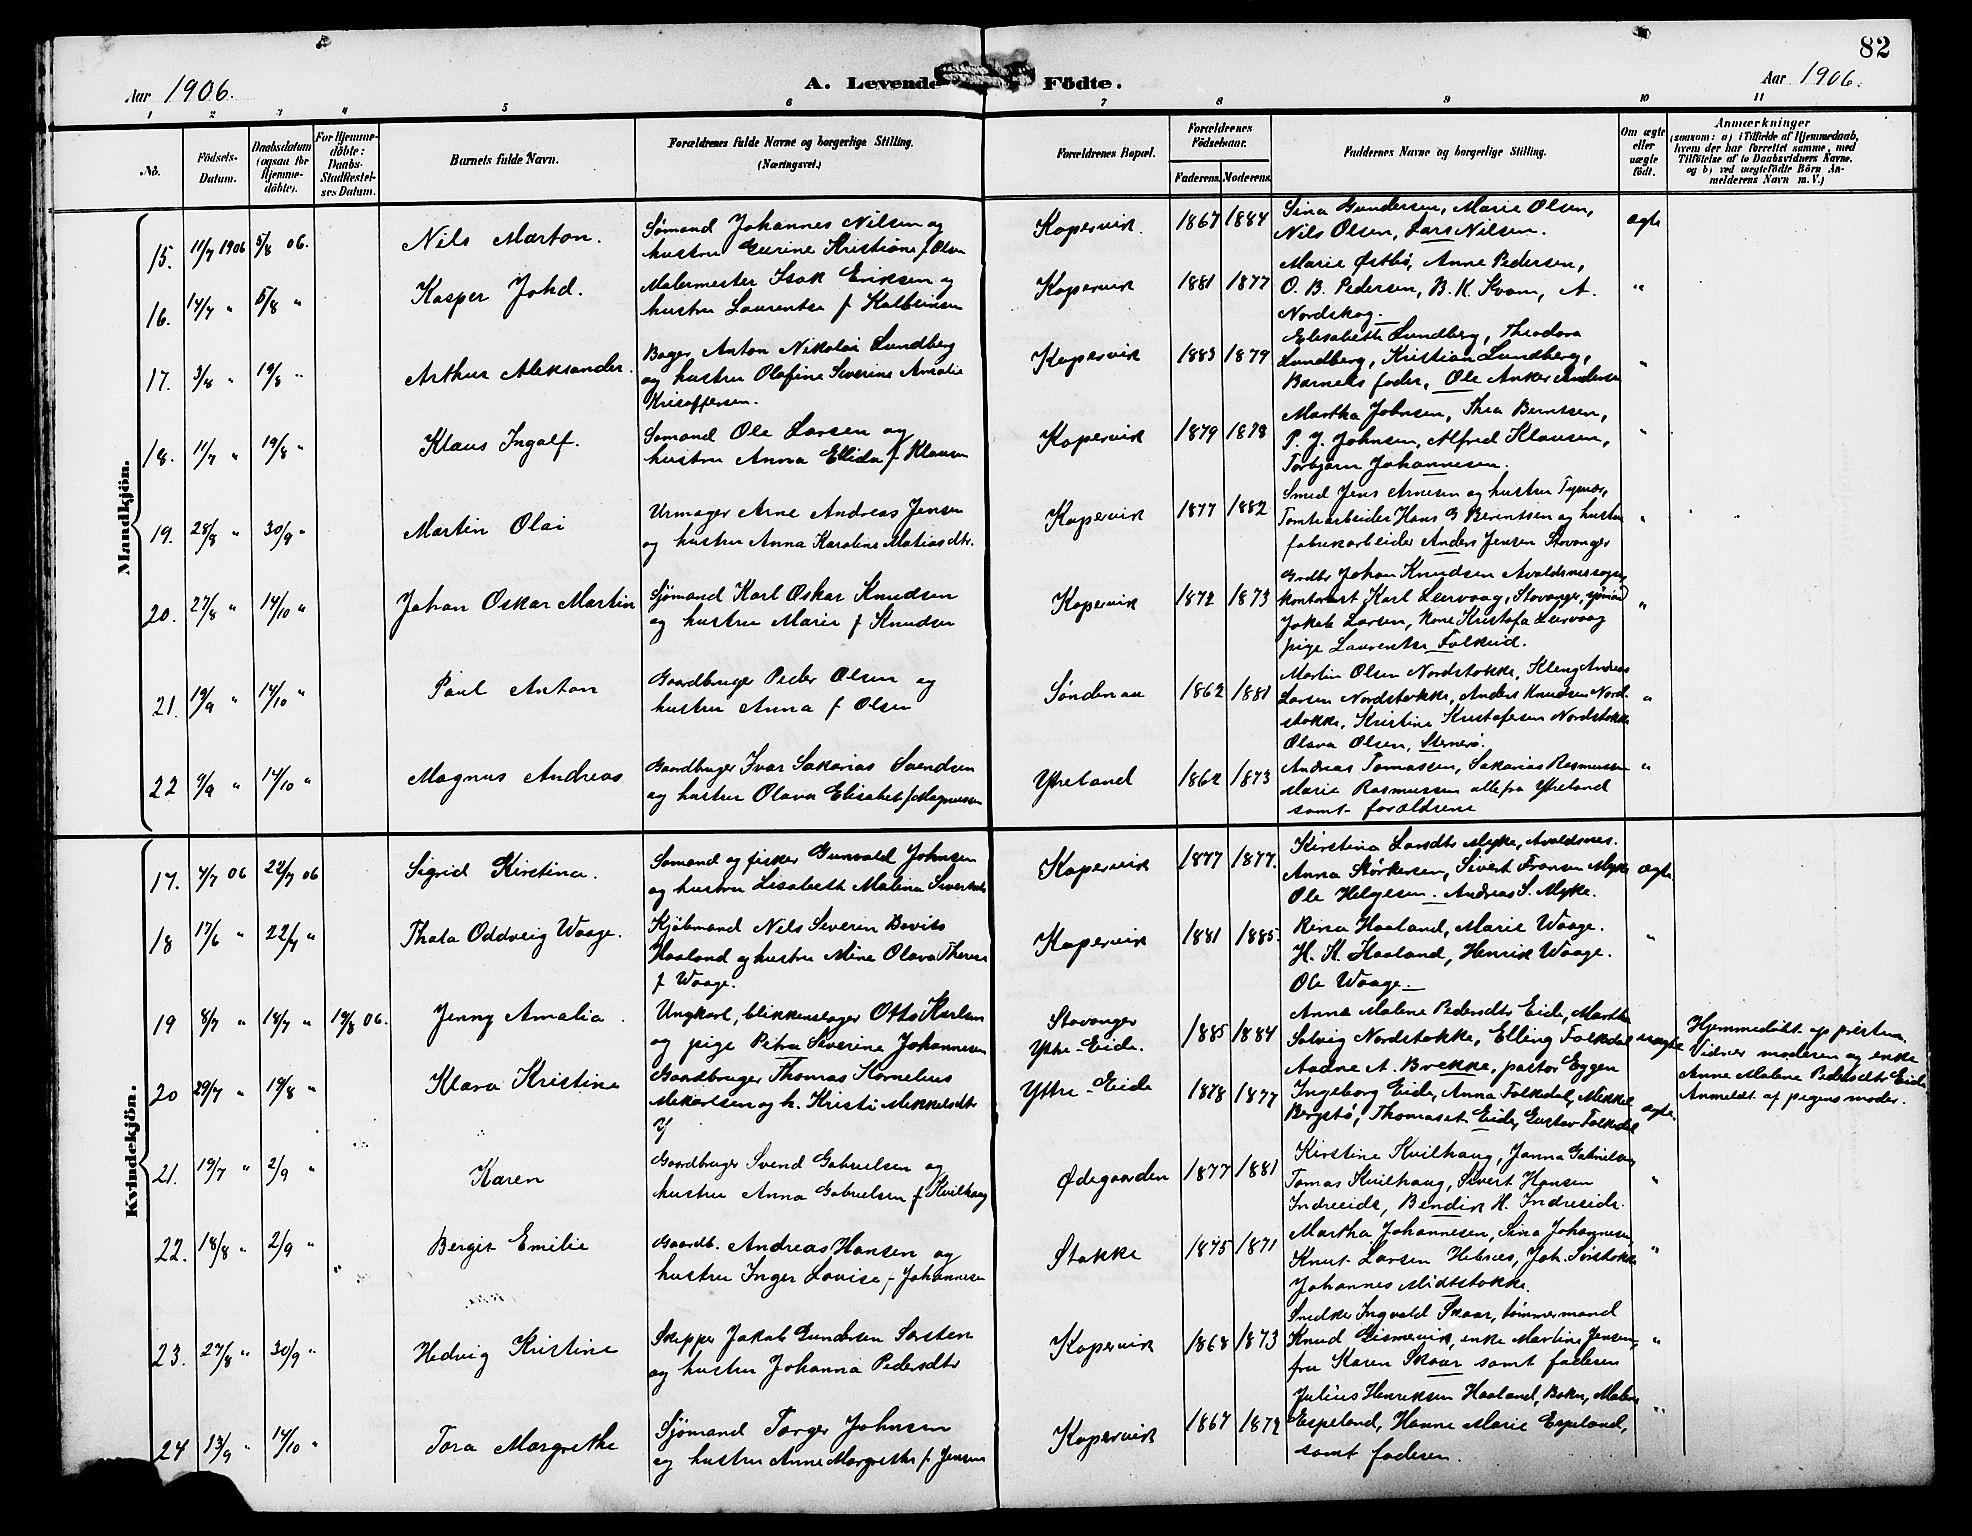 82
Aar 1906.
A. Levende Födte.
Aar 1906.
1 2 3 4 5 6 7 8 9 10 11
No.
Födsels-Datum.
Daabsdatum (ogsaa for Hjemmedöbte).
For Hjemmedöbte: Daabs-Stadfæstelses Datum.
Barnets fulde Navn.
Forældrenes fulde Navne og borgerlige Stilling.
(Næringsvei.)
Forældrenes Bopæl.
Forældrenes Födselsaar.
Faderens. Moderens.
Faddernes Navne og borgerlige Stilling.
Om ægte eller uægte født.
Anmærkninger
(saasom: a) i Tilfælde af Hjemmedaab, hvem der har forrettet samme, med Tilföielse af to Daabsvidners Navne, og b) ved uægtefödte Börn Anmelderens Navn m. V.)
Mandkjön.
15. 11/7 1906 5/8 06. Nils Marton.
Sømand Johannes Nilsen og
hustru Gurine Kristiane f Olsen
Kopervik. 1867 1884
Sina Gundersen, Marie Olsen,
Nils Olsen, Lars Nilsen.
ægte
16. 14/7 " 5/8 " Kasper Johd.
Malermester Isak Eriksen og
hustru Laurentse f Kolbeinsen
Kopervik 1881 1877
Marie Østbø, Anne Pedersen,
O. B. Pedersen, B. K. Kvam, A.
Nordskog.
"
17. 3/8 " 19/8 " Arthur Aleksander.
Bager Anton Nikolai Lundberg
og hustru Olafine Severine Amalie
Kristoffersen.
Kopervik 1883 1879
Elisabeth Lundberg, Theodora
Lundberg, Kristian Lundberg,
Barnets fader, Ole Anker Andersen
"
18. 11/7 " 19/8 " Klaus Ingolf.
Sømand Ole Larsen og
hustru Anna Ellida f Klausen
Kopervik 1879 1878
Martha Johnsen, Thea Berntsen,
P. J. Johnsen, Alfred Klausen,
Torbjørn Johannesen.
"
19. 28/8 " 30/9 " Martin Olai
Urmager Arne Andreas Jensen
og hustru Anna Karoline Matiasdtr.
Kopervik 1877 1882
Smed Jens Arnesen og hustru Tysvær,
Tomtearbeider Hans G Berentsen og hustru
fabrikarbeider Anders Jensen Stavanger
"
20. 27/8 " 14/10 " Johan Oskar Martin
Sjømand Karl Oskar Knudsen
og hustru Marie f Knudsen
Kopervik 1872 1873
Grdbr Johan Knudsen Avaldsnes sogn,
kontorist Karl Leervaag, Stavanger, sjømand
Jakob Larsen, kone Kristofa Leervaag
pige Laurentse Folkeid.
"
21. 19/9 " 14/10 " Paul Anton
Gaardbruger Peder Olsen og
hustru Anna f Olsen
Søndenaa 1862 1881
Martin Olsen Nordstokke, Kleng Andreas
Larsen Nordstokke, Anders Knudsen Nord-
stokke, Kristine Kristofersen Nordstokke
Olava Olsen, Sternerø.
"
22 9/9 " 14/10 " Magnus Andreas
Gaardbruger Ivar Sakarias Svendsen
og hustru Olava Elisabet f Magnussen
Ytreland 1862 1873
Andreas Tomassen, Sakarias Rasmussen
Marie Rasmussen alle fra Ytreland
samt forældrene
"
Kvindekjön.
17. 4/7 06 22/7 06 Sigrid Kirstina.
Sømand og fisker Gunvald Johnsen
og hustru Lisabeth Malina Sivertsdtr
Kopervik 1877 1877.
Kirstina Larsdtr Myke, Avaldsnes.
Anna Størkersen, Sivert Fransen Myke
Ole Helgesen. Andreas S. Myke.
ægte.
18 17/6 " 22/7 " Thala Oddveig Waage.
Kjøbmand Nils Severin Bovits
Haaland og hustru Mine Olava Therese
f Waage.
Kopervik 1881 1885.
Rina Haaland, Marie Waage.
H. K. Haaland, Henrik Waage.
Ole Waage.
"
19 8/7 " 18/7 " 19/8 06. Jenny Amalia.
Ungkarl, blikkenslager Otto Karlsen
og pige Petra Severine Johannesen
Stavanger
Ytre-Eide.
1885 1884
Anna Malene Pedersdtr Eide, Martha
Solvig Nordstokke, Elling Folkedal
Aadne A. Brekke, pastor Eggen
uægte
Hjemmedøbt af presten.
Vidner moderen og enke
Anne Malene Pedersdtr Eide.
Anmeldt af pigens moder.
20 29/7 " 19/8 " Klara Kristine
Gaardbruger Thomas Kornelius
Mikalsen og h. Kristi Mikkelsdtr
Ytre-Eide 1878 1877
Ingeborg Eide, Anna Folkedal, Mikkel
Bergstø, Thomaset Eide, Gustav Folkedal
ægte.
21. 19/7 " 2/9 " Karen
Gaardbruger Svend Gabrielsen og
hustru Anna Gabrielsen f Kvilhaug
Ødegaarden 1877 1881
Kirstine Kvilhaug, Janna Gabrielsen,
Tomas Kvilhaug, Sivert Hansen
Indreeide, Bendik H. Indreeide.
"
22. 18/8 " 2/9 " Bergit Emilie
Gaardb. Andreas Hansen og
hustru Inger Lovise f Johannesen
Stokke 1875 1871
Martha Johannesen, Sina Johannesen,
Knut Larsen Hebnes, Joh. Sørstokke
Johannes Midtstokke.
"
23. 27/8 " 30/9 " Hedvig Kristine
Skipper Jakob Gundersen Sørsten
og hustru Johanna Pedersdtr
Kopervik 1868 1873
Snedker Ingvald Skaar, tømmermand
Knud Gismervik, enke Martine Jensen,
fru Karen Skaar samt faderen
"
24 13/9 " 14/10 " Tora Margrethe
Sjømand Torger Johnsen
og hustru Anne Margrethe f Jensen
Kopervik 1867 1872
Julius Henriksen Haaland, Bokn, Malene
Espeland, Hanne Marie Espeland,
samt faderen.
"